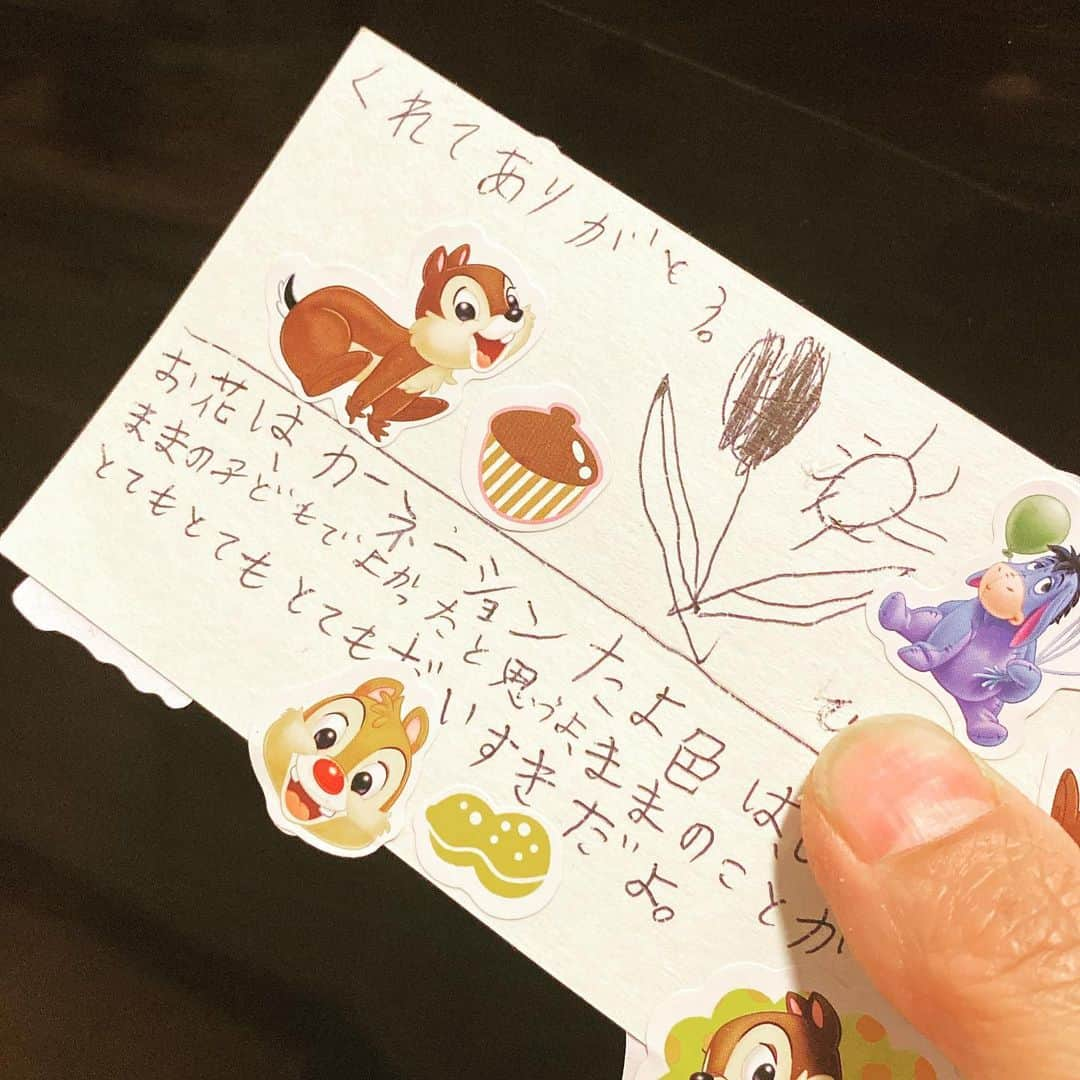 くれてありがとう。
お花は、カーネーションだよ色は、
ままの子どもでよかったと思うよ、ままのことが
とてもとてもとてもだいすきだよ。